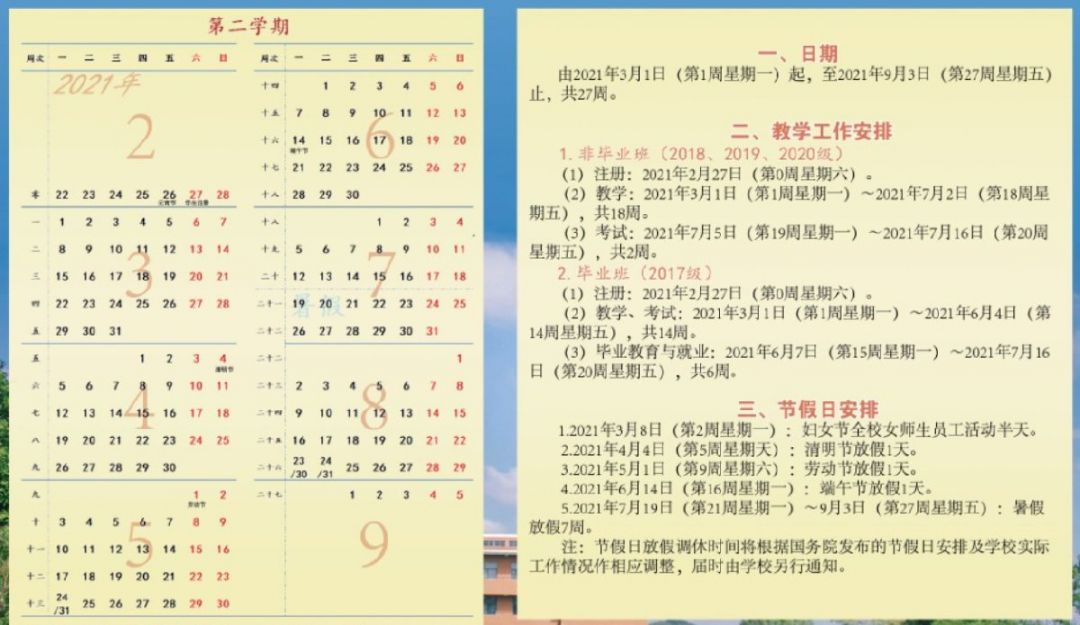 第二学期
周次 一 二 三 四 五 六 日
2021年
2
零 22 23 24 25 26 27 28
元宵节 学生注册
一 1 2 3 4 5 6 7
二 8 9 10 11 12 13 14
3
三 15 16 17 18 19 20 21
四 22 23 24 25 26 27 28
五 29 30 31
五 1 2 3 4
清明节
六 5 6 7 8 9 10 11
4
七 12 13 14 15 16 17 18
八 19 20 21 22 23 24 25
九 26 27 28 29 30
九 1 2
劳动节
十 3 4 5 6 7 8 9
5
十一 10 11 12 13 14 15 16
十二 17 18 19 20 21 22 23
十三 24/31 25 26 27 28 29 30
周次 一 二 三 四 五 六 日
十四 1 2 3 4 5 6
十五 7 8 9 10 11 12 13
6
十六 14 15 16 17 18 19 20
端午节
十七 21 22 23 24 25 26 27
十八 28 29 30
十八 1 2 3 4
十九 5 6 7 8 9 10 11
7
二十 12 13 14 15 16 17 18
二十一 19 20 21 22 23 24 25
暑假
二十二 26 27 28 29 30 31
二十二 1
二十三 2 3 4 5 6 7 8
8
二十四 9 10 11 12 13 14 15
二十五 16 17 18 19 20 21 22
二十六 23/30 24/31 25 26 27 28 29
二十七 1 2 3 4 5
9
一、日期
由2021年3月1日（第1周星期一）起，至2021年9月3日（第27周星期五）
止，共27周。
二、教学工作安排
1.非毕业班（2018、2019、2020级）
（1）注册：2021年2月27日（第0周星期六）。
（2）教学：2021年3月1日（第1周星期一）～2021年7月2日（第18周星
期五），共18周。
（3）考试：2021年7月5日（第19周星期一）～2021年7月16日（第20周
星期五），共2周。
2.毕业班（2017级）
（1）注册：2021年2月27日（第0周星期六）。
（2）教学、考试：2021年3月1日（第1周星期一）～2021年6月4日（第
14周星期五），共14周。
（3）毕业教育与就业：2021年6月7日（第15周星期一）～2021年7月16
日（第20周星期五），共6周。
三、节假日安排
1.2021年3月8日（第2周星期一）：妇女节全校女师生员工活动半天。
2.2021年4月4日（第5周星期天）：清明节放假1天。
3.2021年5月1日（第9周星期六）：劳动节放假1天。
4.2021年6月14日（第16周星期一）：端午节放假1天。
5.2021年7月19日（第21周星期一）～9月3日（第27周星期五）：暑假
放假7周。
注：节假日放假调休时间将根据国务院发布的节假日安排及学校实际
工作情况作相应调整，届时由学校另行通知。